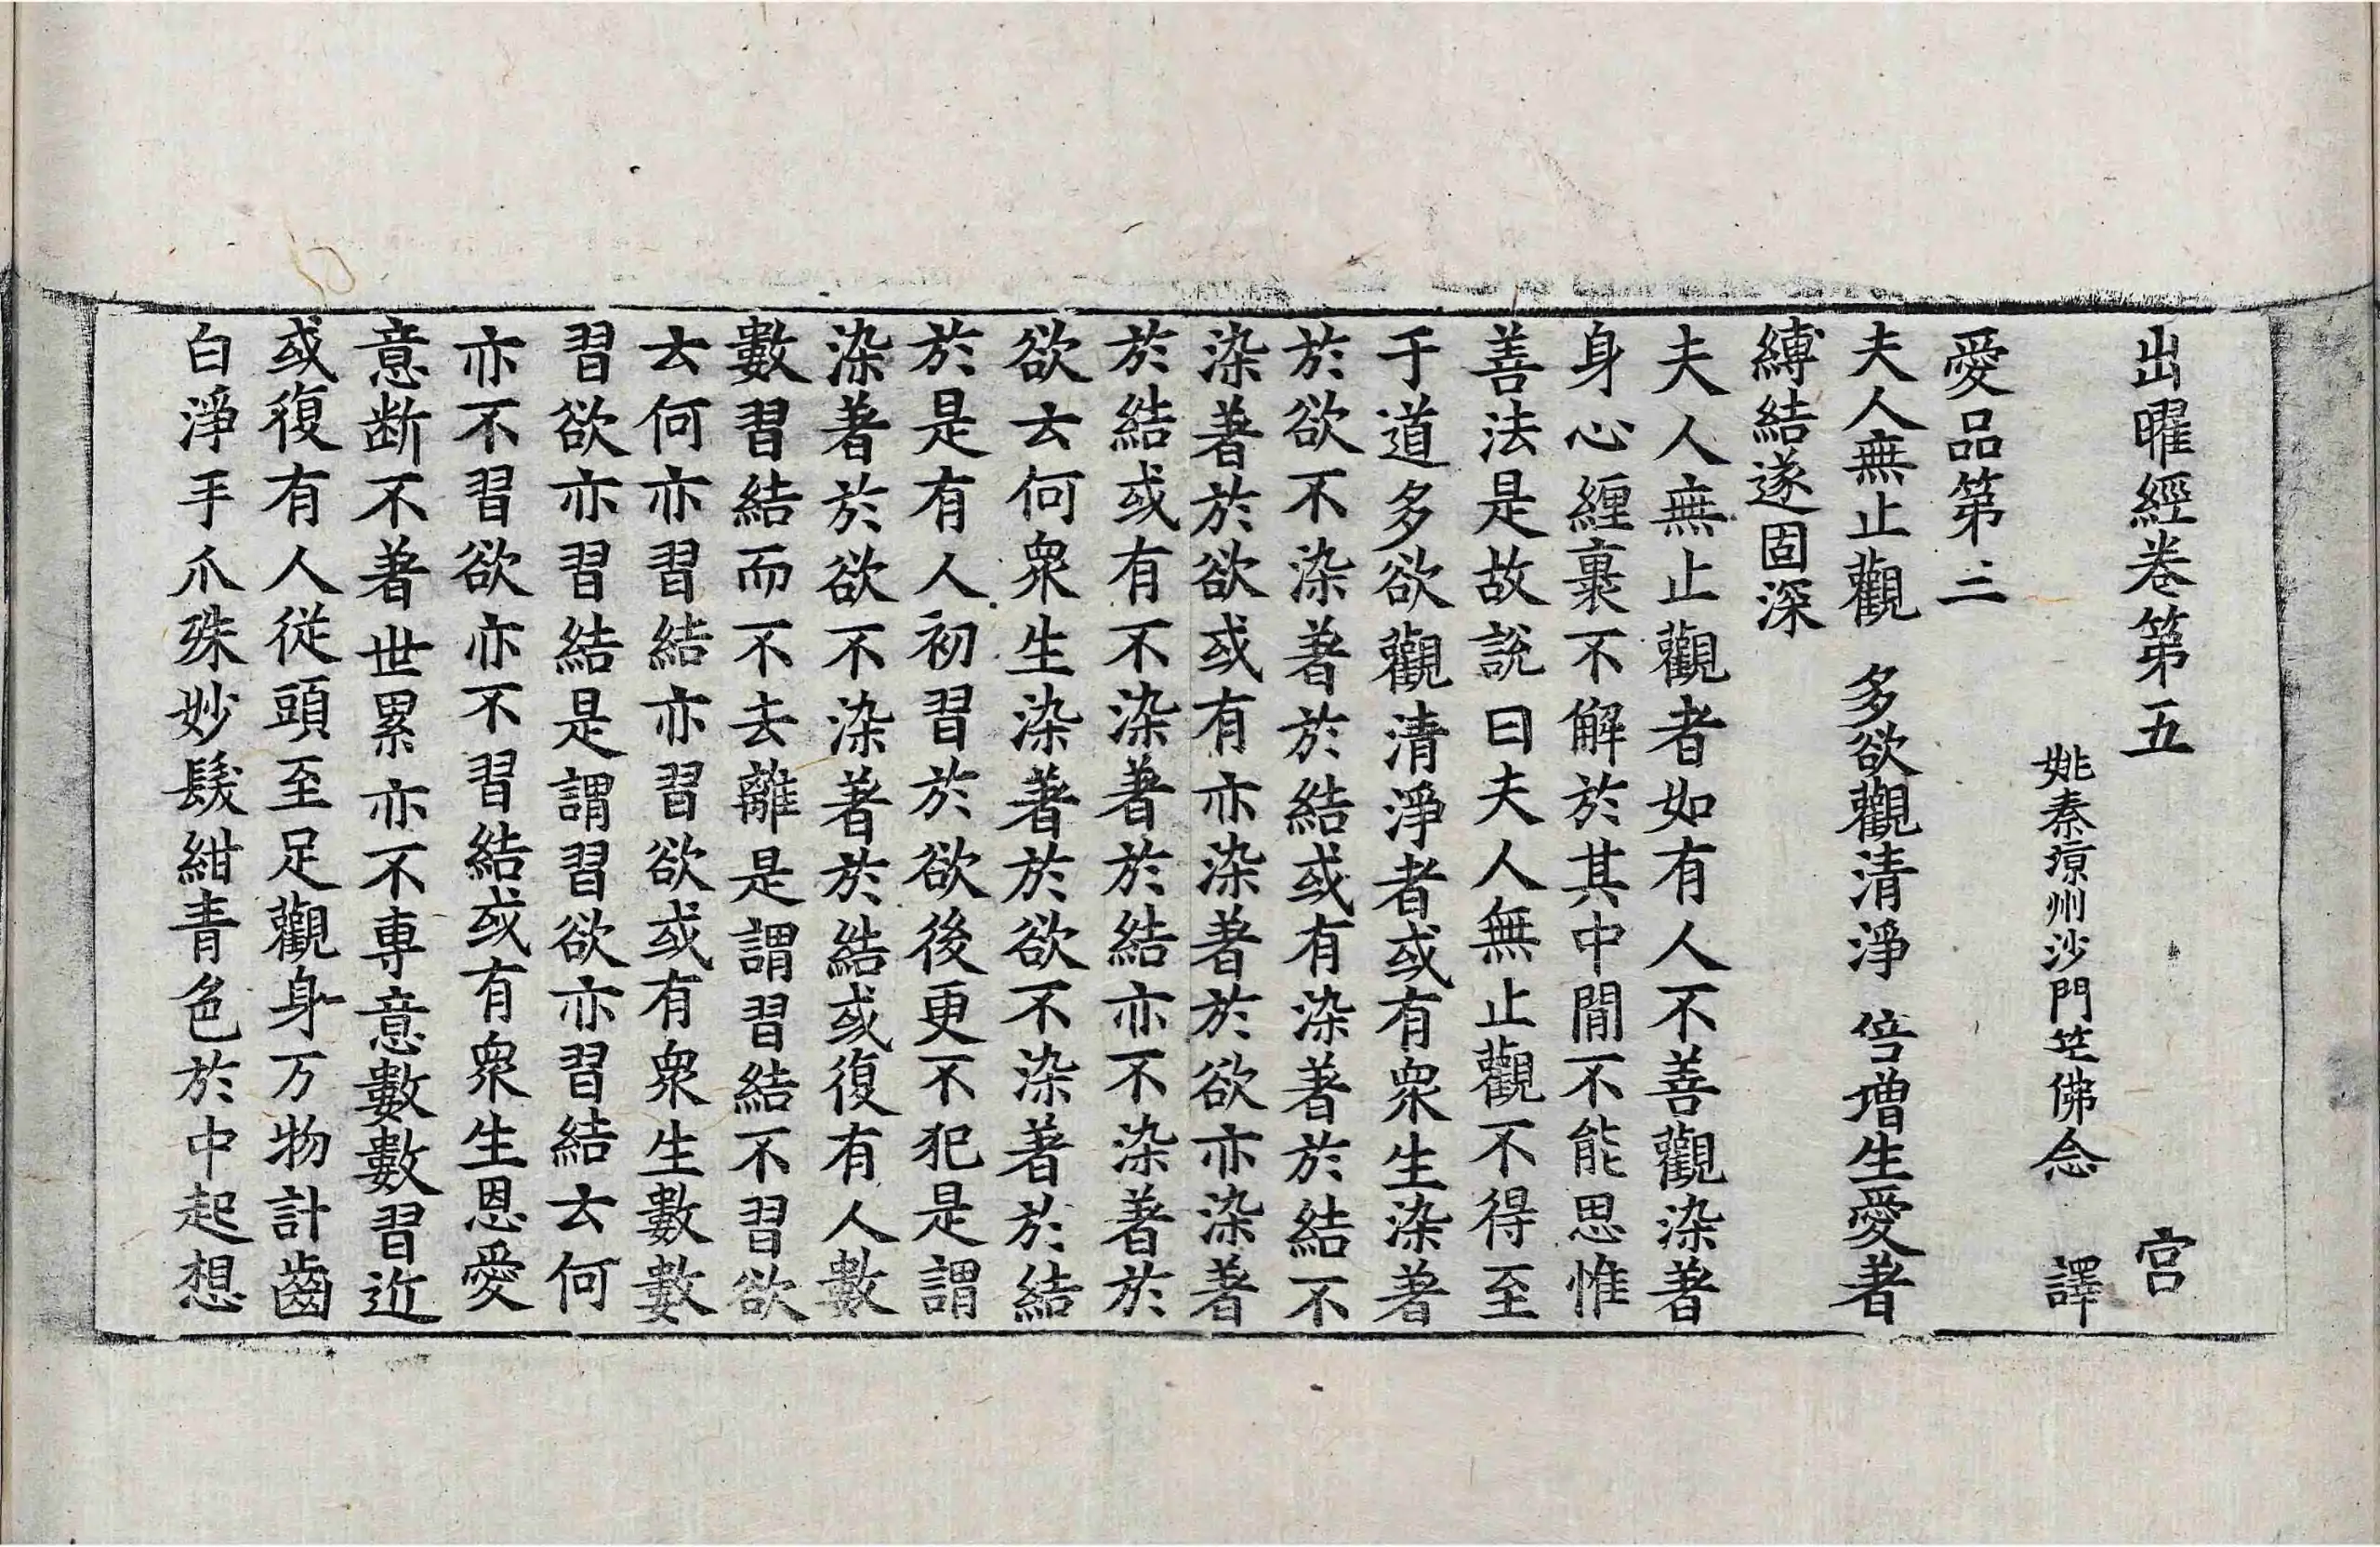 出曜經卷第五 宫
姚秦涼州沙門竺佛念 譯
愛品第三
夫人無止觀 多欲觀清淨 倍增生愛著
縛結遂固深
夫人無止觀者如有人不善觀染著
身心纏裹不解於其中間不能思惟
善法是故說曰夫人無止觀不得至
于道多欲觀清淨者或有衆生染著
於欲不染著於結或有染著於結不
染著於欲或有亦染著於欲亦染著
於結或有不染著於結亦不染著於
欲云何衆生染著於欲不染著於結
於是有人初習於欲後更不犯是謂
染著於欲不染著於結或復有人數
數習結而不去離是謂習結不習欲
云何亦習結亦習欲或有衆生數數
習欲亦習結是謂習欲亦習結云何
亦不習欲亦不習結或有衆生恩愛
意断不著世累亦不專意數數習近
或復有人從頭至足觀身万物計齒
白淨手爪殊妙髮紺青色於中起想